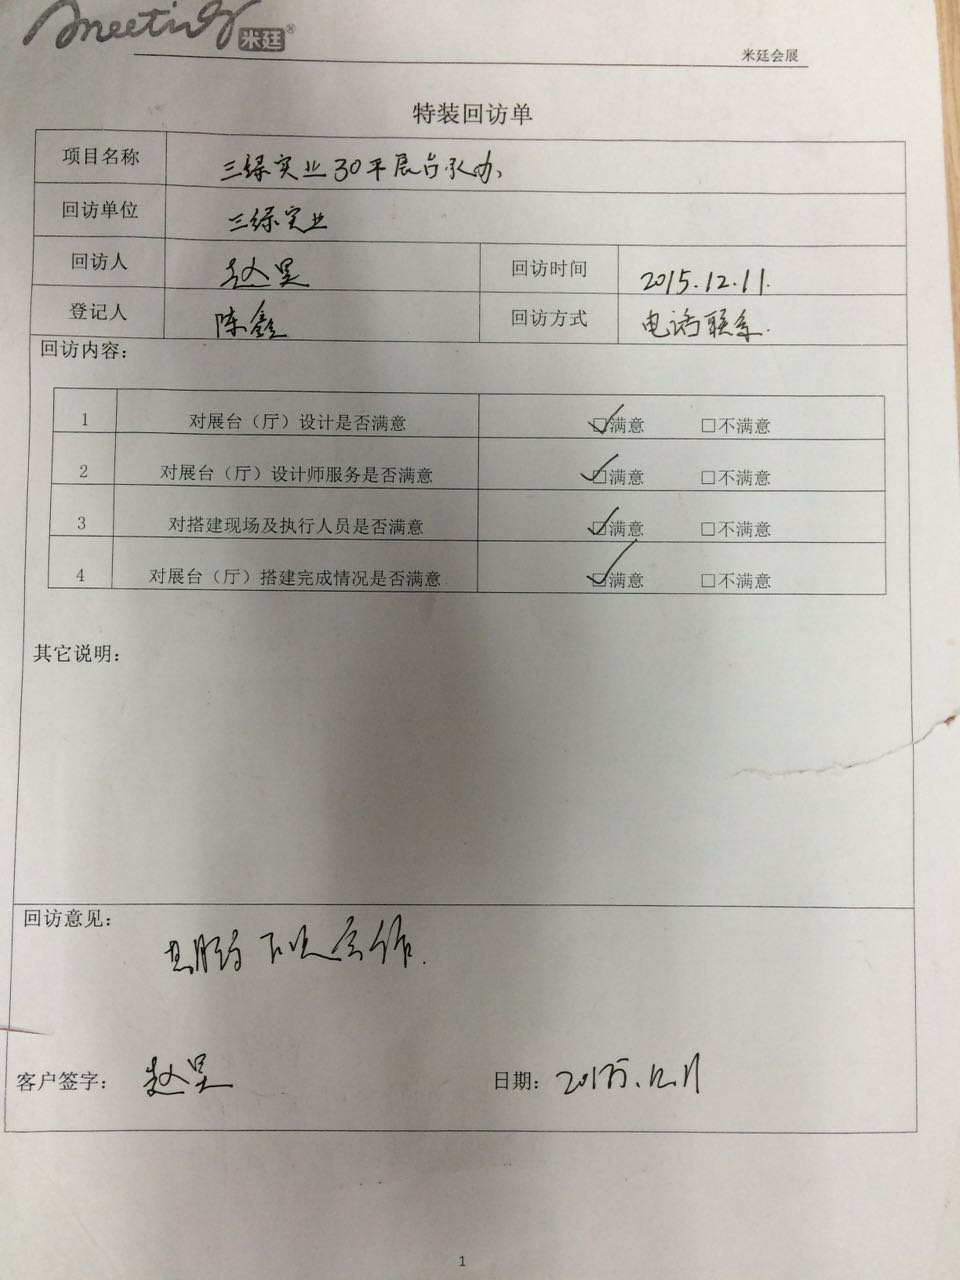 Meeting 米廷®
米廷会展
特装回访单
项目名称 三绿实业30平展台承办.
回访单位 三绿实业
回访人 赵昊 回访时间 2015.12.11.
登记人 陈鑫 回访方式 电话联系.
回访内容：
1 对展台（厅）设计是否满意 ☑满意 □不满意
2 对展台（厅）设计师服务是否满意 ☑满意 □不满意
3 对搭建现场及执行人员是否满意 ☑满意 □不满意
4 对展台（厅）搭建完成情况是否满意 ☑满意 □不满意
其它说明：
回访意见：
下次合作.
客户签字： 赵昊 日期： 2015.12.11
1